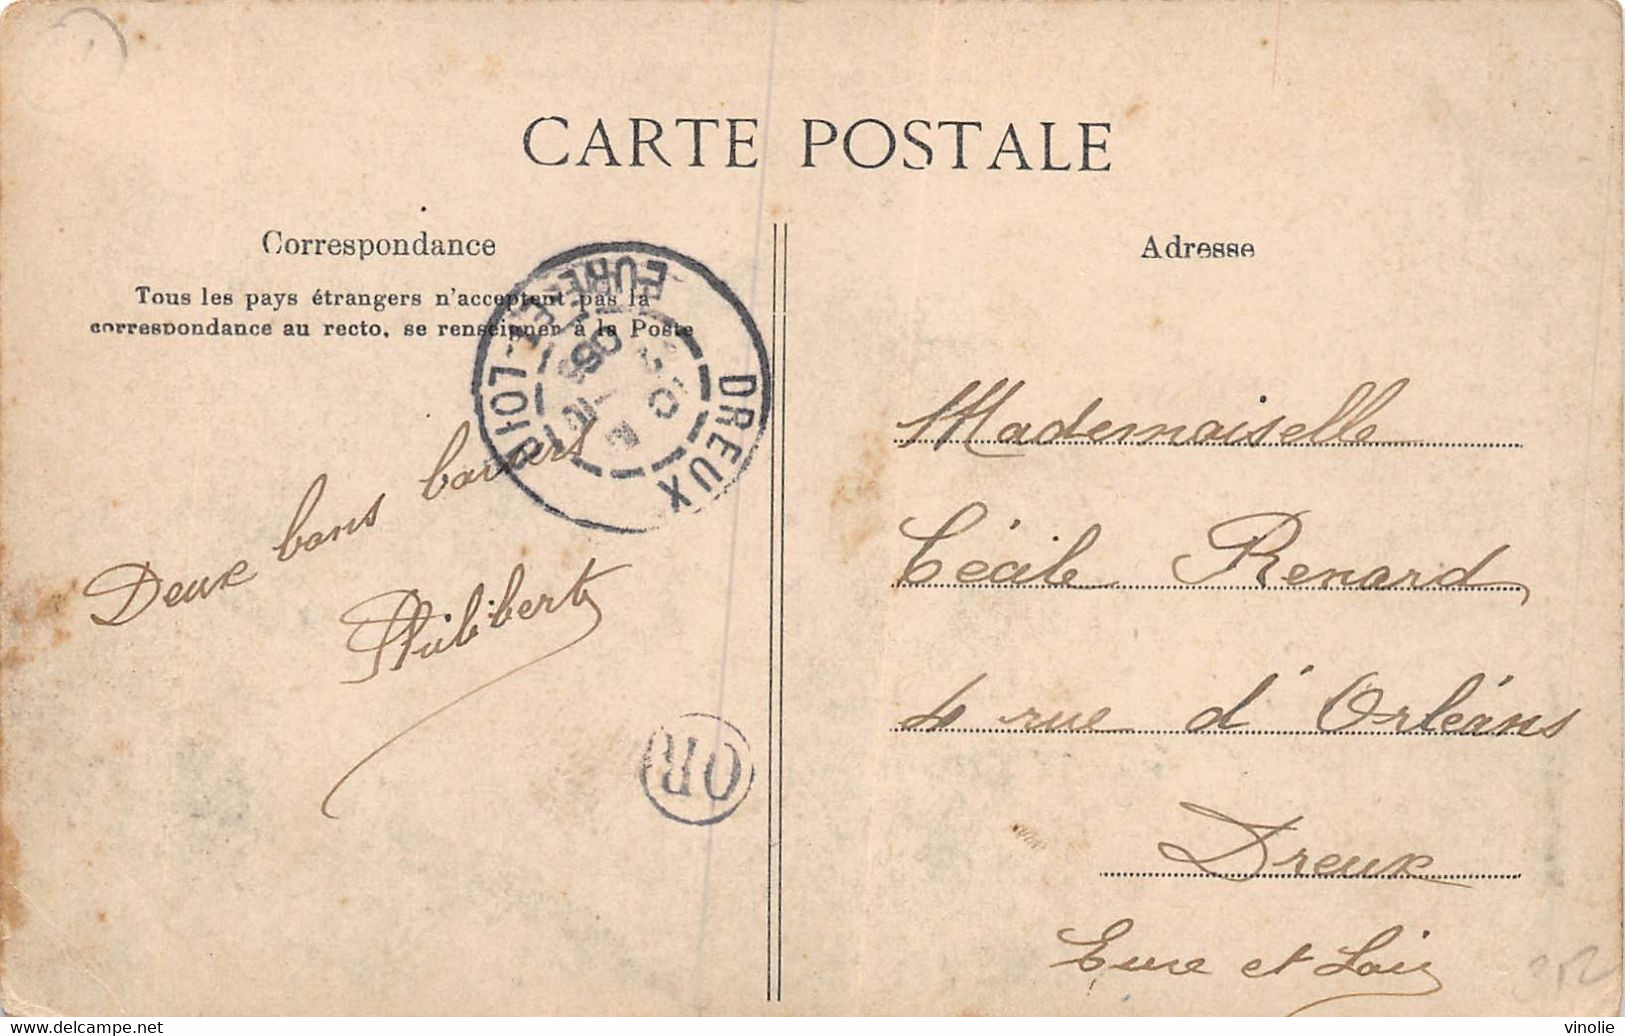 CARTE POSTALE
Correspondance
Tous les pays étrangers n'acceptent pas la
correspondance au recto, se renseigner à la Poste
DREUX
EURE-ET-LOIR
Deux bons baisers
Philibert
OR
Adresse
Mademoiselle
Cécile Renard
4 rue d'Orléans
Dreux
Eure et Loir
vinolie